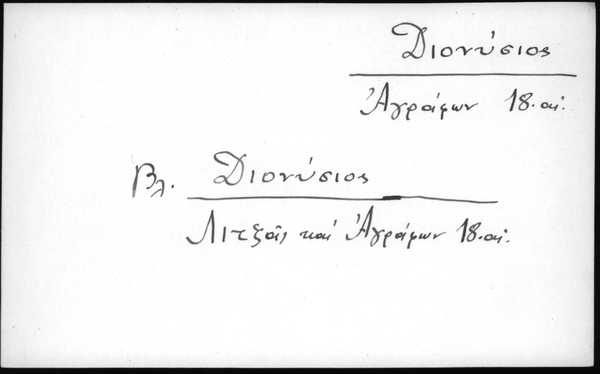 Διονύσιος
Ἀγράφων 18.αἰ.
Βλ. Διονύσιος
Λιτζᾶς καί Ἀγράφων 18.αἰ.